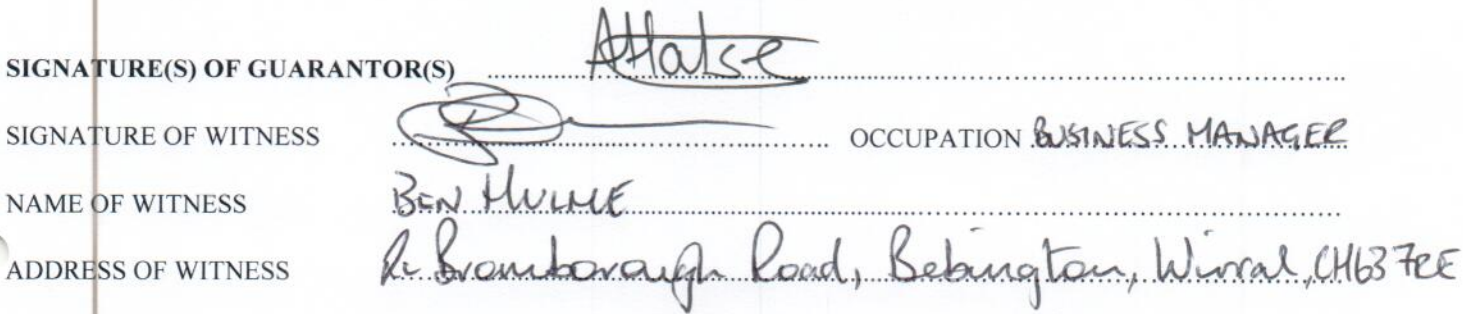 SIGNATURE(S) OF GUARANTOR(S)
SIGNATURE OF WITNESS OCCUPATION BUSINESS MANAGER
NAME OF WITNESS BEN HULME
ADDRESS OF WITNESS Bromborough Road, Bebington, Wirral, CH63 7RE